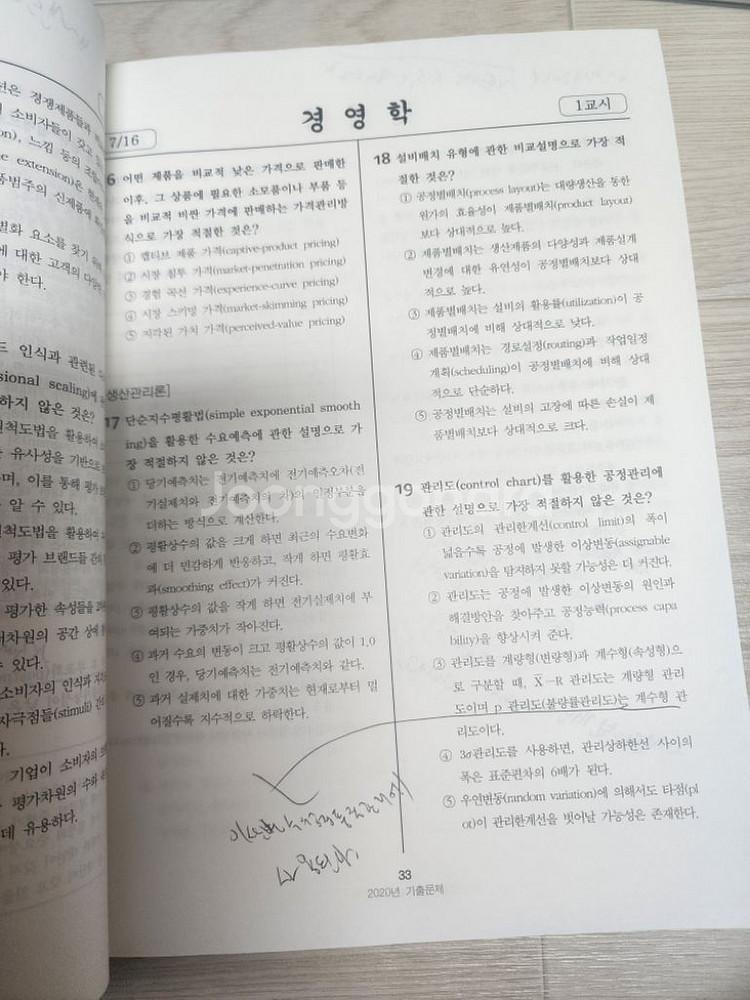 선은 경쟁제품들과
소비자들이 갖고
on), 느낌 등의
e extension)은
품범주의 신제품에
화 요소를 찾기 위해
에 대한 고객의
야 한다.
드 인식과 관련된
sional scaling)에
하지 않은 것은?
척도법을 활용하여
유사성을 기반으로
며, 이를 통해 평가
알 수 있다.
척도법을 활용하여
평가 브랜드들 간의
있다.
평가한 속성들을
차원의 공간 상에
수 있다.
소비자의 인식과
자극점들(stimuli) 간의
다.
기업이 소비자의
평가차원의 수와
데 유용하다.
경 영 학
1교시
7/16
6 어떤 제품을 비교적 낮은 가격으로 판매한
이후, 그 상품에 필요한 소모품이나 부품 등
을 비교적 비싼 가격에 판매하는 가격관리방
식으로 가장 적절한 것은?
① 캡티브 제품 가격(captive-product pricing)
② 시장 침투 가격(market-penetration pricing)
③ 경험 곡선 가격(experience-curve pricing)
④ 시장 스키밍 가격(market-skimming pricing)
⑤ 지각된 가치 가격(perceived-value pricing)
생산관리론]
17 단순지수평활법(simple exponential smooth
ing)을 활용한 수요예측에 관한 설명으로 가
장 적절하지 않은 것은?
① 당기예측치는 전기예측치에 전기예측오차(전
기실제치와 전기예측치의 차)의 일정부분을
더하는 방식으로 계산한다.
② 평활상수의 값을 크게 하면 최근의 수요변화
에 더 민감하게 반응하고, 작게 하면 평활효
과(smoothing effect)가 커진다.
③ 평활상수의 값을 작게 하면 전기실제치에 부
여되는 가중치가 작아진다.
④ 과거 수요의 변동이 크고 평활상수의 값이 1.0
인 경우, 당기예측치는 전기예측치와 같다.
⑤ 과거 실제치에 대한 가중치는 현재로부터 멀
어질수록 지수적으로 하락한다.
18 설비배치 유형에 관한 비교설명으로 가장 적
절한 것은?
① 공정별배치(process layout)는 대량생산을 통한
원가의 효율성이 제품별배치(product layout)
보다 상대적으로 높다.
② 제품별배치는 생산제품의 다양성과 제품설계
변경에 대한 유연성이 공정별배치보다 상대
적으로 높다.
③ 제품별배치는 설비의 활용률(utilization)이 공
정별배치에 비해 상대적으로 낮다.
④ 제품별배치는 경로설정(routing)과 작업일정
계획(scheduling)이 공정별배치에 비해 상대
적으로 단순하다.
⑤ 공정별배치는 설비의 고장에 따른 손실이 제
품별배치보다 상대적으로 크다.
19 관리도(control chart)를 활용한 공정관리에
관한 설명으로 가장 적절하지 않은 것은?
① 관리도의 관리한계선(control limit)의 폭이
넓을수록 공정에 발생한 이상변동(assignable
variation)을 탐지하지 못할 가능성은 더 커진다.
② 관리도는 공정에 발생한 이상변동의 원인과
해결방안을 찾아주고 공정능력(process capa
bility)을 향상시켜 준다.
③ 관리도를 계량형(변량형)과 계수형(속성형)으
로 구분할 때, X̄-R 관리도는 계량형 관리
도이며 p 관리도(불량률관리도)는 계수형 관
리도이다.
④ 3σ관리도를 사용하면, 관리상하한선 사이의
폭은 표준편차의 6배가 된다.
⑤ 우연변동(random variation)에 의해서도 타점(pl
ot)이 관리한계선을 벗어날 가능성은 존재한다.
33
2020년 기출문제
Joongg